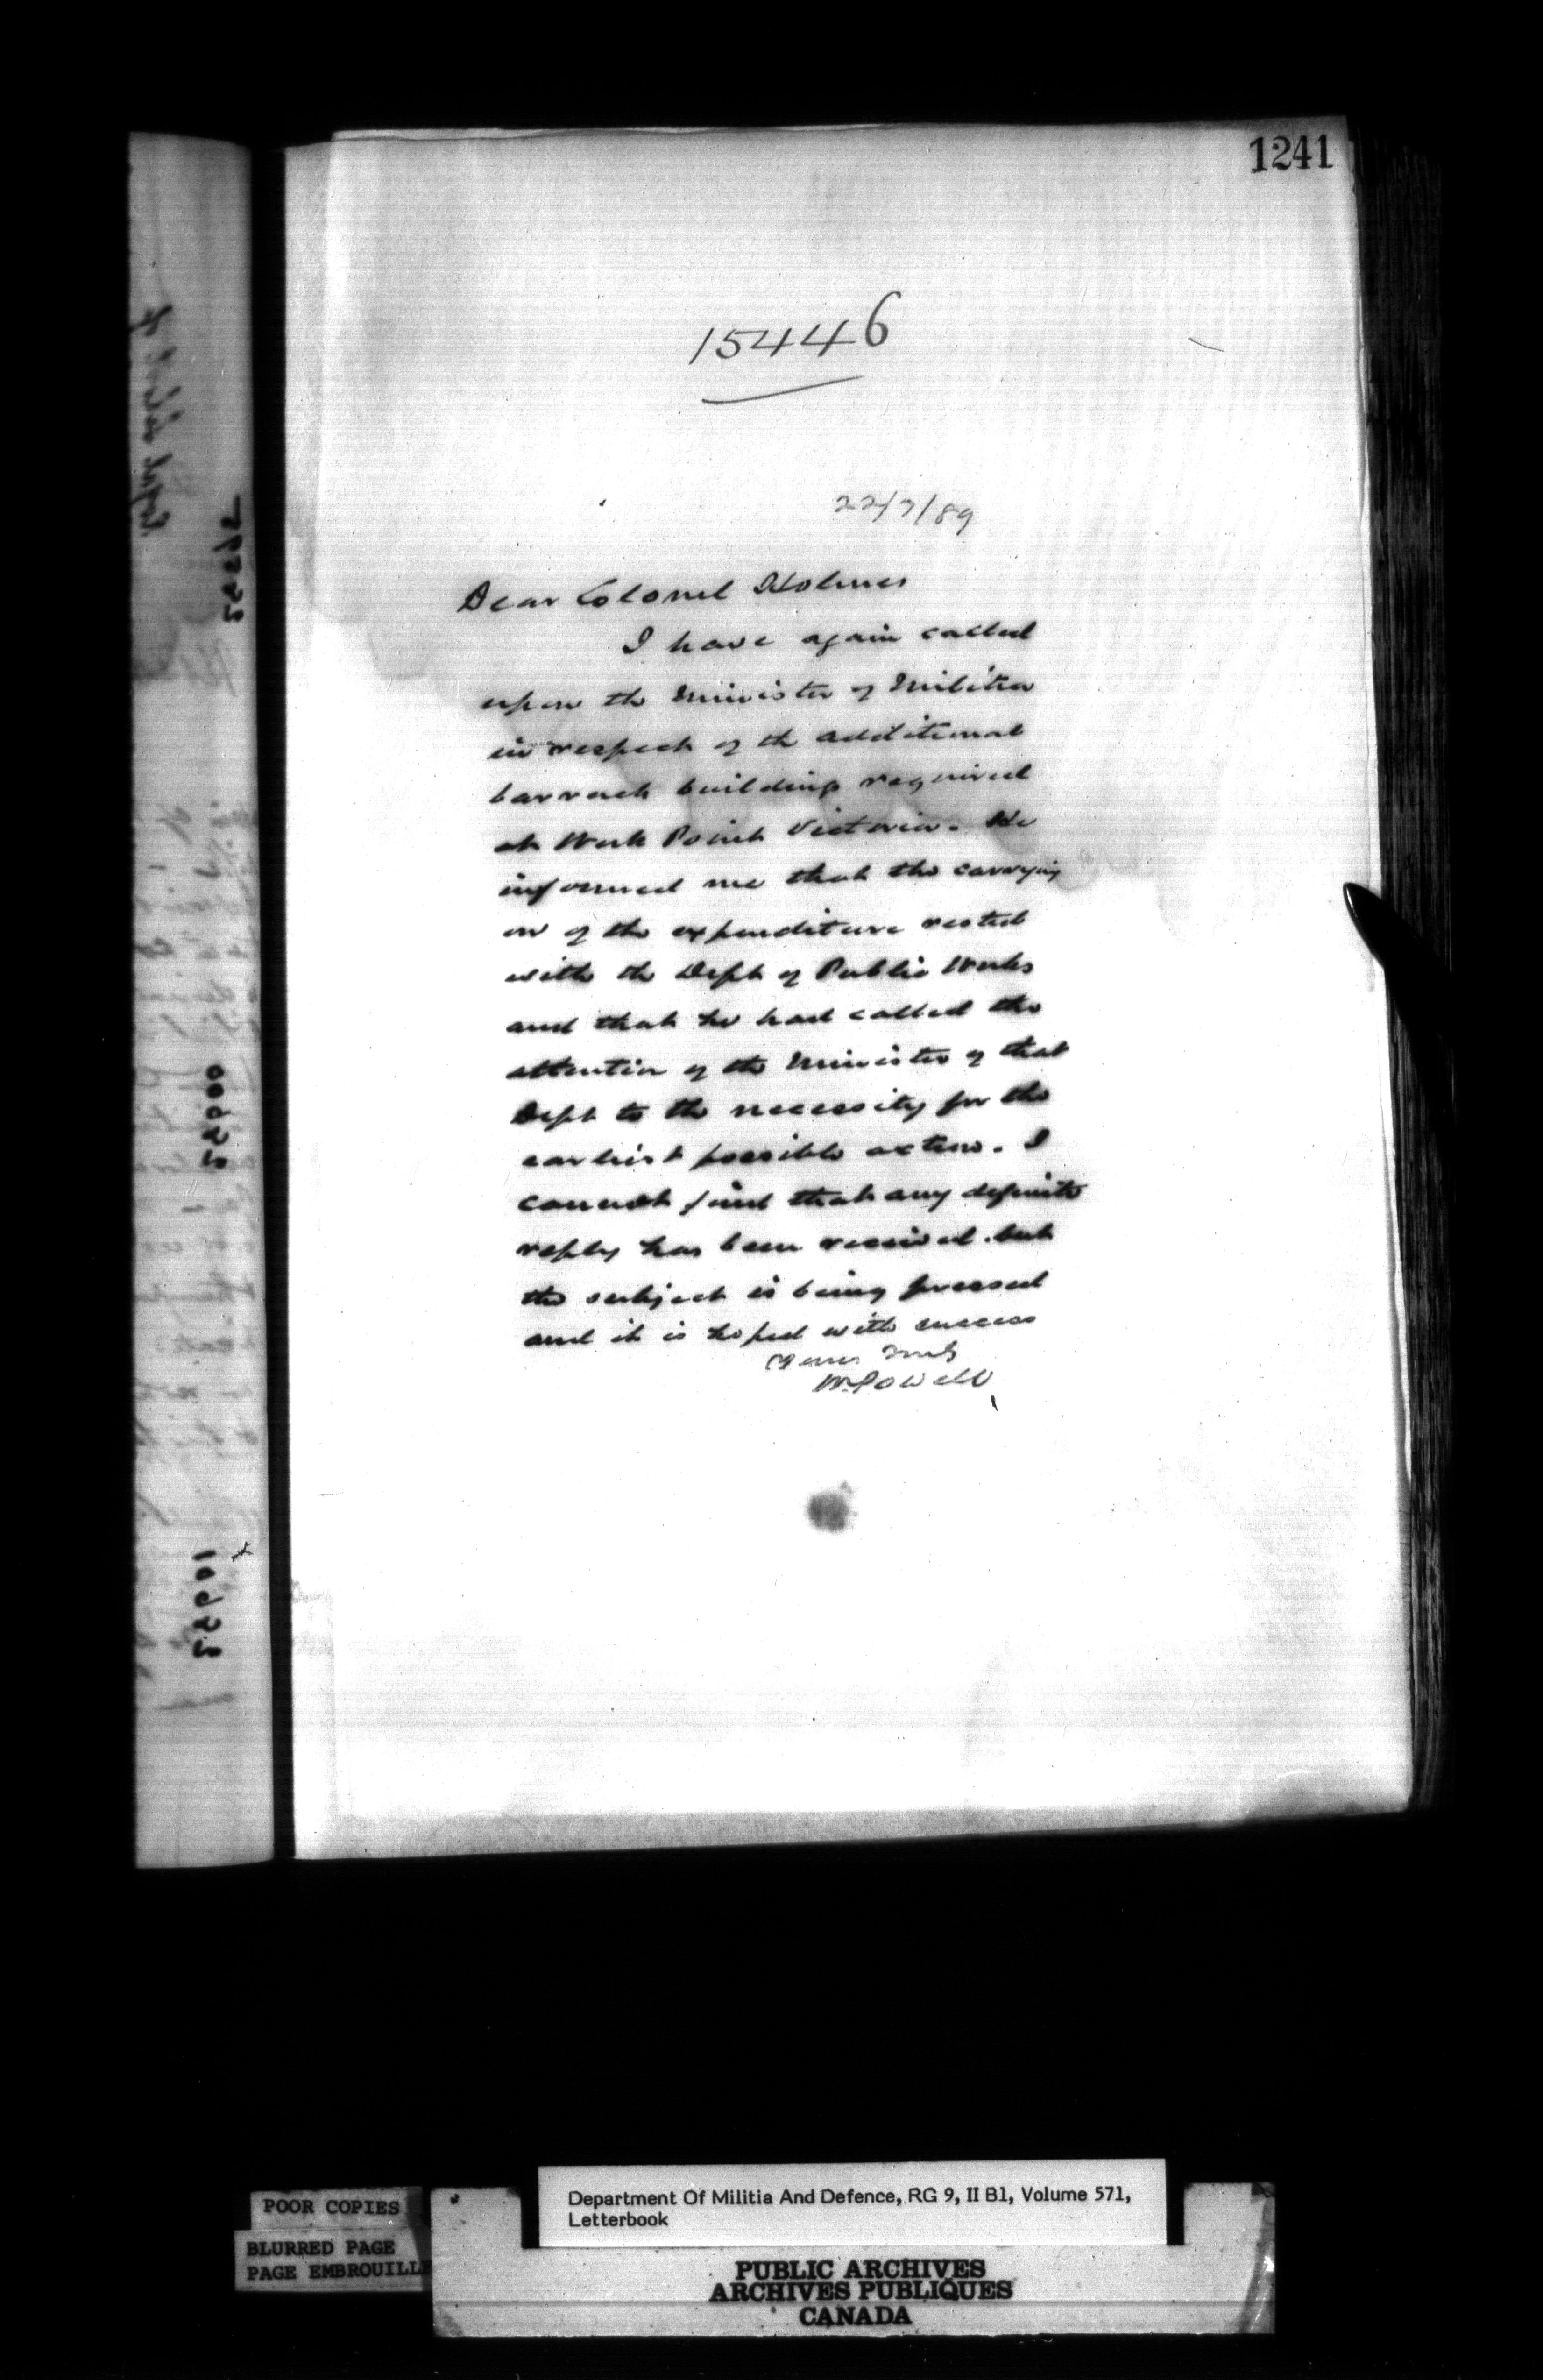 1241
15446
22/7/89
Dear Colonel Holmes
I have again called
upon the Minister of Militia
in respect of the additional
barrack building required
at Work Point Victoria. He
informed me that the carrying
on of the expenditure rested
with the Dept of Public Works
and that he had called the
attention of the Minister of that
Dept to the necessity for the
earliest possible action. I
cannot find that any definite
reply has been received but
the subject is being pressed
and it is hoped with success
Yours Truly
W. Powell
25900
25901
POOR COPIES
BLURRED PAGE
PAGE EMBROUILLE
Department Of Militia And Defence, RG 9, II B1, Volume 571,
Letterbook
PUBLIC ARCHIVES
ARCHIVES PUBLIQUES
CANADA